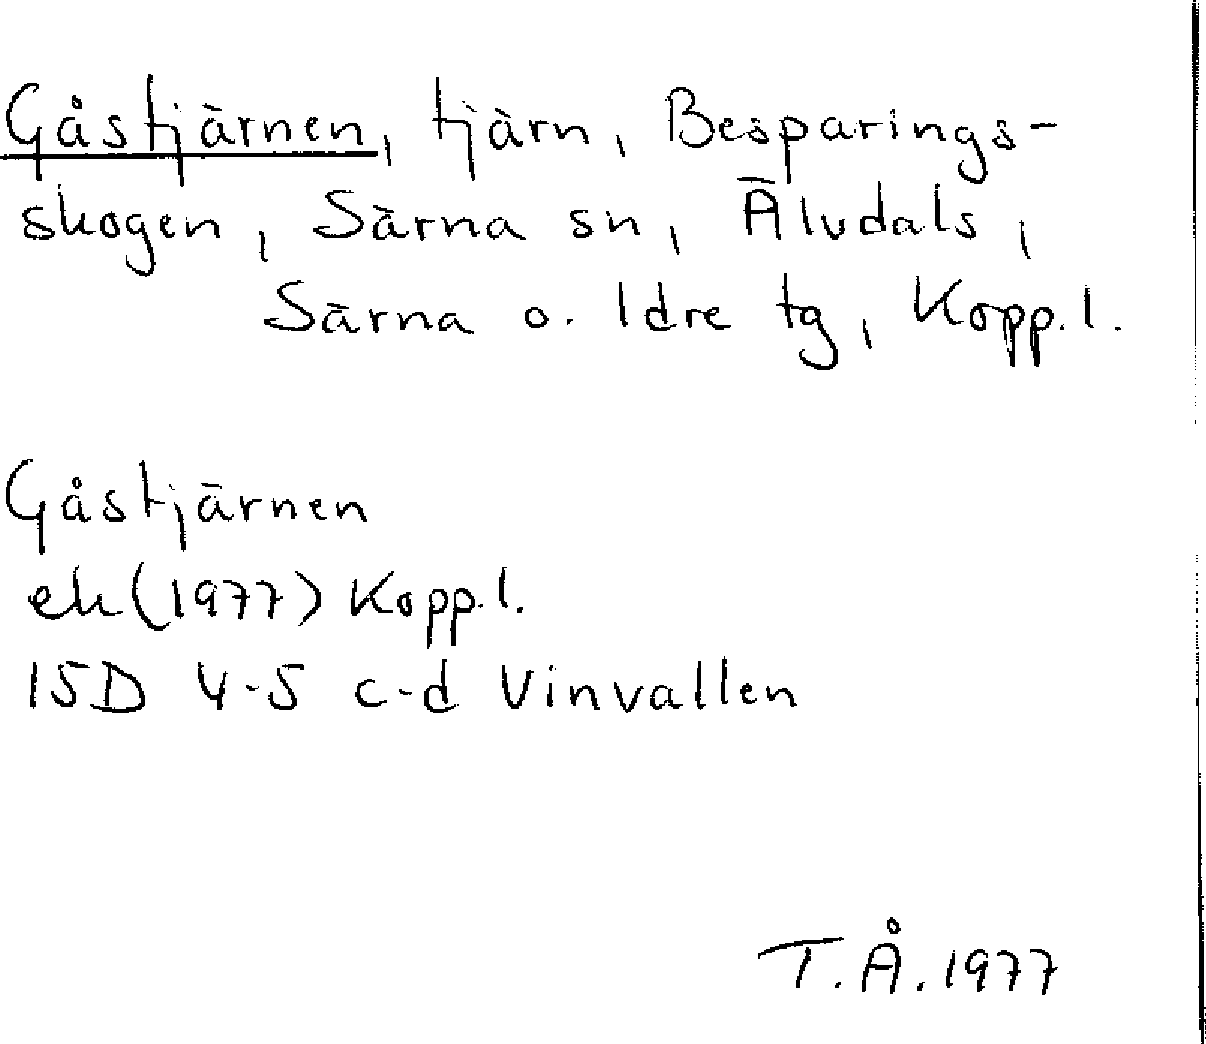 Gåstjärnen, tjärn, Besparings-
skogen, Särna sn, Älvdals,
Särna o. Idre tg, Kopp.l.
Gåstjärnen
ek (1977) Kopp.l.
15D 4-5 c-d Vinvallen
T.Å. 1977